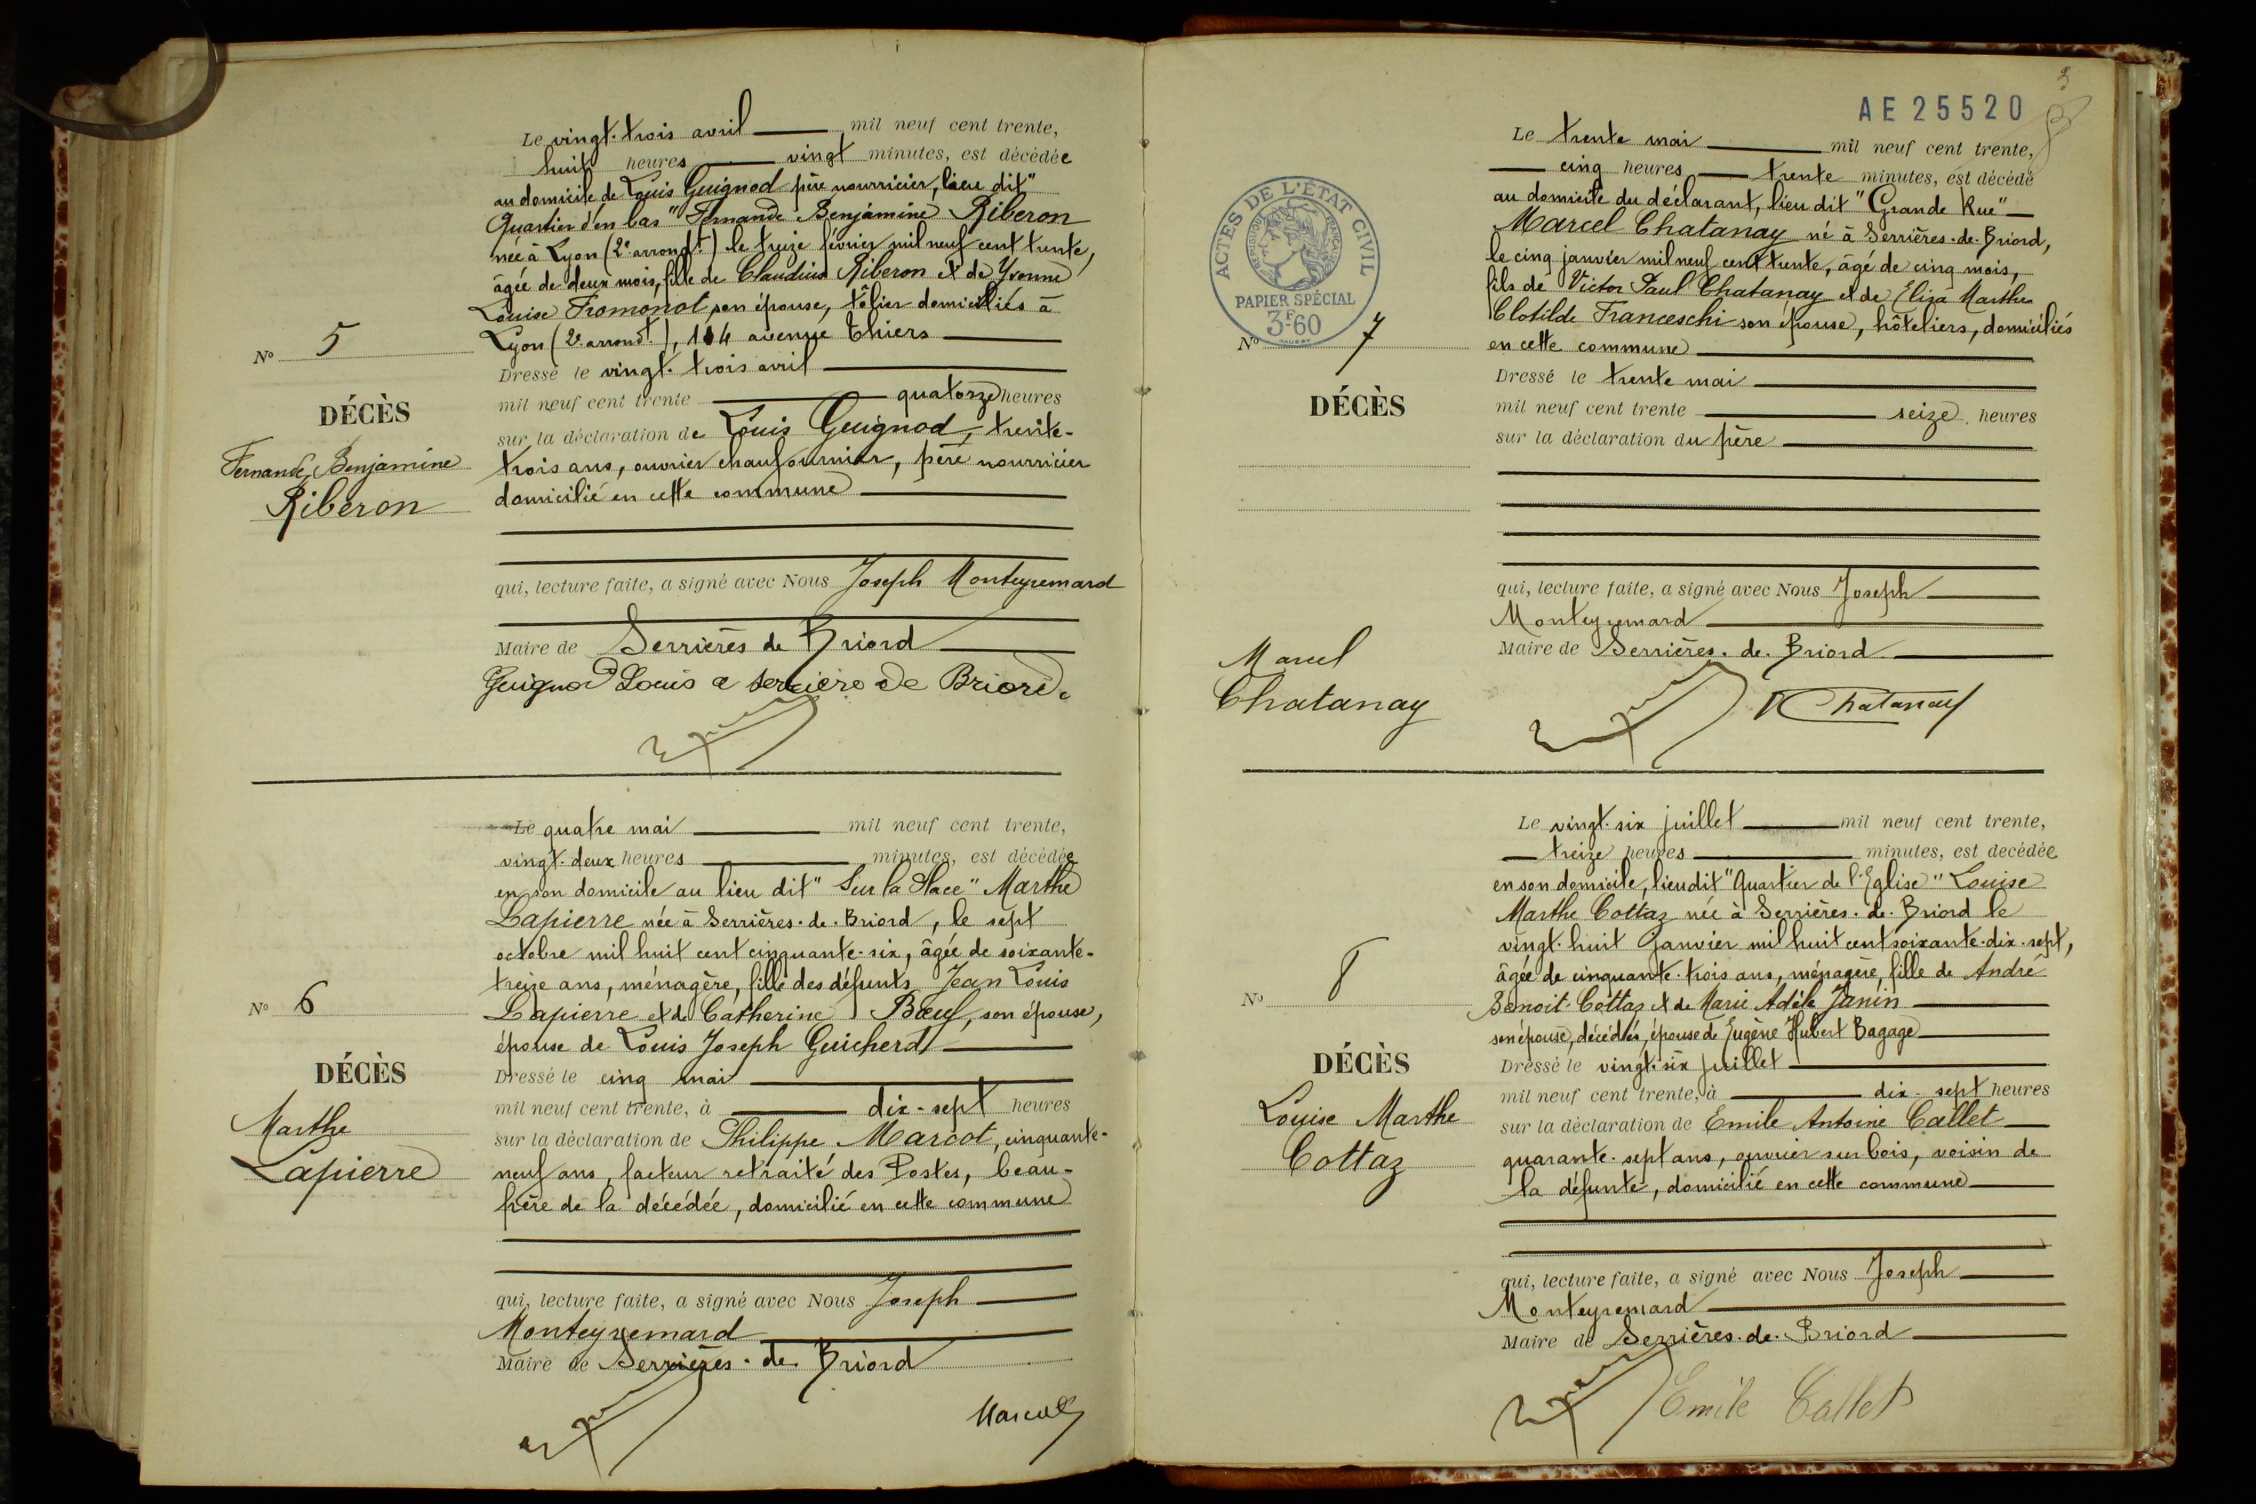 Le vingt-trois avril mil neuf cent trente,
huit heures vingt minutes, est décédée
au domicile de Louis Guignod père nourricier, lieu dit "
Quartier d'en bas" Fernande Benjamine Riberon
née à Lyon (2e arrondt) le treize février mil neuf cent trente,
âgée de deux mois, fille de Claudius Riberon et de Yvonne
Louise Fromonot, son épouse, tôlier domiciliés à
Lyon (2e arrondt), 104 avenue Thiers
Dressé le vingt-trois avril
mil neuf cent trente quatorze heures
sur la déclaration de Louis Guignod, trente-
trois ans, ouvrier chaufournier, père nourricier
domicilié en cette commune
qui, lecture faite, a signé avec Nous Joseph Monteyremard
Maire de Serrières de Briord
Guignod Louis a serriere de Briord
No 5
DÉCÈS
Fernande Benjamine
Riberon
Le quatre mai mil neuf cent trente,
vingt-deux heures minutes, est décédée
en son domicile au lieu dit "Sur la Place" Marthe
Lapierre née à Serrières-de-Briord, le sept
octobre mil huit cent cinquante-six, âgée de soixante-
treize ans, ménagère, fille des défunts Jean Louis
Lapierre et de Catherine Bœuf, son épouse,
épouse de Louis Joseph Guicherd
Dressé le cinq mai
mil neuf cent trente, à dix-sept heures
sur la déclaration de Philippe Marcot, cinquante-
neuf ans, facteur retraité des Postes, beau-
frère de la décédée, domicilié en cette commune
qui, lecture faite, a signé avec Nous Joseph
Monteyremard
Maire de Serrières-de-Briord
No 6
DÉCÈS
Marthe
Lapierre
3
AE 25520
ACTES DE L'ÉTAT CIVIL
RÉPUBLIQUE FRANÇAISE
PAPIER SPÉCIAL
3F60
Le trente mai mil neuf cent trente,
cinq heures trente minutes, est décédé
au domicile du déclarant, lieu dit "Grande Rue"
Marcel Chatanay né à Serrières-de-Briord,
le cinq janvier mil neuf cent trente, âgé de cinq mois,
fils de Victor Paul Chatanay et de Eliza Marthe
Clotilde Franceschi son épouse, hôteliers, domiciliés
en cette commune
Dressé le trente mai
mil neuf cent trente seize heures
sur la déclaration du père
qui, lecture faite, a signé avec Nous Joseph
Monteyremard
Maire de Serrières-de-Briord
Chatanay
No 7
DÉCÈS
Marcel
Chatanay
Le vingt-six juillet mil neuf cent trente,
treize heures minutes, est décédée
en son domicile, lieu dit "Quartier de l'Eglise" Louise
Marthe Cottaz née à Serrières-de-Briord le
vingt-huit Janvier mil huit cent soixante-dix-sept,
âgée de cinquante-trois ans, ménagère, fille de André
Benoit Cottaz et de Marie Adèle Janin
son épouse, décédés, épouse de Eugène Hubert Bagage
Dressé le vingt-six juillet
mil neuf cent trente, à dix-sept heures
sur la déclaration de Emile Antoine Callet
quarante-sept ans, ouvrier sur bois, voisin de
la défunte, domicilié en cette commune
qui, lecture faite, a signé avec Nous Joseph
Monteyremard
Maire de Serrières-de-Briord
Emile Callet
No 8
DÉCÈS
Louise Marthe
Cottaz